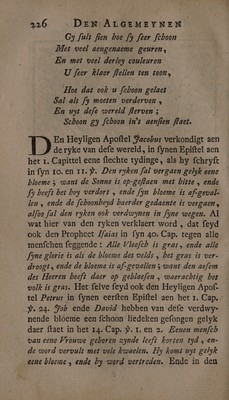 226 DEN ALGEMEYNEN
Gy sult sien hoe sy seer schoon
Met veel aengenaeme geuren,
En met veel derley couleuren
U seer klaer stellen ten toon,
Hoe dat ook u schoon gelaet
Sal als sy moeten verderven,
En uyt dese wereld sterven;
Schoon gy schoon in's aensien staet.
DEn Heyligen Apostel Jacobus verkondigt aen
de ryke van dese wereld, in synen Epistel aen
het 1. Capittel eene slechte tydinge, als hy schryft
in syn 10. en 11. ℣. Den ryken sal vergaen gelyk eene
bloeme; want de Sonne is op-gestaen met hitte, ende
sy heeft het hoy verdort, ende syn bloeme is af-geval-
len, ende de schoonheyd haerder gedaente is vergaen,
also sal den ryken ook verdwynen in syne wegen. Al
wat hier van den ryken verklaert word, dat seyd
ook den Propheet Isaias in syn 40. Cap. tegen alle
menschen seggende: Alle Vleesch is gras, ende alle
syne glorie is als de bloeme des velds, het gras is ver-
droogt, ende de bloeme is af-gevallen; want den asem
des Heeren heeft daer op geblaesen, waerachtig het
volk is gras. Het selve seyd ook den Heyligen Apos-
tel Petrus in synen eersten Epistel aen het 1. Cap.
℣. 24. Job ende David hebben van dese verdwy-
nende bloeme een schoon liedeken gesongen gelyk
daer staet in het 14. Cap. ℣. 1. en 2. Eenen mensch
van eene Vrouwe geboren zynde leeft korten tyd, en-
de word vervult met vele kwaelen. Hy komt uyt gelyk
eene bloeme, ende hy word vertreden. Ende in den